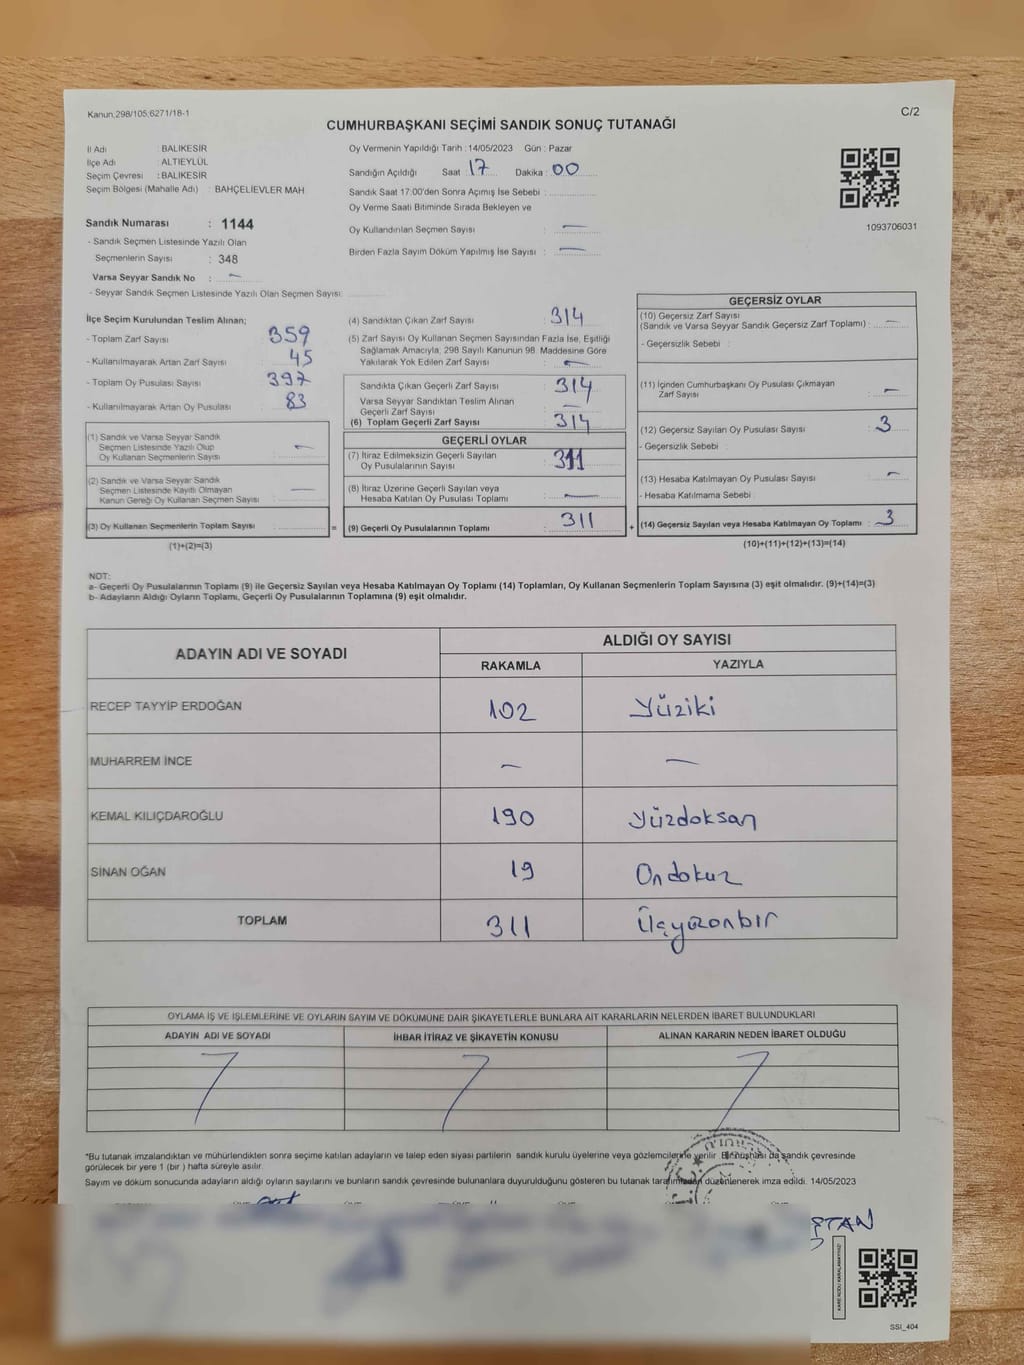 Kanun,298/105;6271/18-1
C/2
CUMHURBAŞKANI SEÇİMİ SANDIK SONUÇ TUTANAĞI
İl Adı : BALIKESİR
İlçe Adı : ALTIEYLÜL
Seçim Çevresi : BALIKESİR
Seçim Bölgesi (Mahalle Adı) : BAHÇELİEVLER MAH
Sandık Numarası : 1144
- Sandık Seçmen Listesinde Yazılı Olan
Seçmenlerin Sayısı : 348
Varsa Seyyar Sandık No : —
- Seyyar Sandık Seçmen Listesinde Yazılı Olan Seçmen Sayısı:
Oy Vermenin Yapıldığı Tarih : 14/05/2023 Gün : Pazar
Sandığın Açıldığı Saat : 17 Dakika : 00
Sandık Saat 17:00'den Sonra Açımış İse Sebebi :
Oy Verme Saati Bitiminde Sırada Bekleyen ve
Oy Kullandırılan Seçmen Sayısı : —
Birden Fazla Sayım Döküm Yapılmış İse Sayısı : —
1093706031
İlçe Seçim Kurulundan Teslim Alınan;
- Toplam Zarf Sayısı 359
- Kullanılmayarak Artan Zarf Sayısı 45
- Toplam Oy Pusulası Sayısı 397
- Kullanılmayarak Artan Oy Pusulası 83
(1) Sandık ve Varsa Seyyar Sandık
Seçmen Listesinde Yazılı Olup
Oy Kullanan Seçmenlerin Sayısı : —
(2) Sandık ve Varsa Seyyar Sandık
Seçmen Listesinde Kayıtlı Olmayan
Kanun Gereği Oy Kullanan Seçmen Sayısı : —
(3) Oy Kullanan Seçmenlerin Toplam Sayısı :
(1)+(2)=(3)
(4) Sandıktan Çıkan Zarf Sayısı : 314
(5) Zarf Sayısı Oy Kullanan Seçmen Sayısından Fazla İse, Eşitliği
Sağlamak Amacıyla, 298 Sayılı Kanunun 98. Maddesine Göre
Yakılarak Yok Edilen Zarf Sayısı : —
Sandıkta Çıkan Geçerli Zarf Sayısı : 314
Varsa Seyyar Sandıktan Teslim Alınan
Geçerli Zarf Sayısı : —
(6) Toplam Geçerli Zarf Sayısı : 314
GEÇERLİ OYLAR
(7) İtiraz Edilmeksizin Geçerli Sayılan
Oy Pusulalarının Sayısı : 311
(8) İtiraz Üzerine Geçerli Sayılan veya
Hesaba Katılan Oy Pusulası Toplamı : —
= (9) Geçerli Oy Pusulalarının Toplamı : 311
GEÇERSİZ OYLAR
(10) Geçersiz Zarf Sayısı
(Sandık ve Varsa Seyyar Sandık Geçersiz Zarf Toplamı) : —
- Geçersizlik Sebebi :
(11) İçinden Cumhurbaşkanı Oy Pusulası Çıkmayan
Zarf Sayısı : —
(12) Geçersiz Sayılan Oy Pusulası Sayısı : 3
- Geçersizlik Sebebi :
(13) Hesaba Katılmayan Oy Pusulası Sayısı : —
- Hesaba Katılmama Sebebi :
+ (14) Geçersiz Sayılan veya Hesaba Katılmayan Oy Toplamı : 3
(10)+(11)+(12)+(13)=(14)
NOT:
a- Geçerli Oy Pusulalarının Toplamı (9) ile Geçersiz Sayılan veya Hesaba Katılmayan Oy Toplamı (14) Toplamları, Oy Kullanan Seçmenlerin Toplam Sayısına (3) eşit olmalıdır. (9)+(14)=(3)
b- Adayların Aldığı Oyların Toplamı, Geçerli Oy Pusulalarının Toplamına (9) eşit olmalıdır.
ADAYIN ADI VE SOYADI ALDIĞI OY SAYISI
RAKAMLA YAZIYLA
RECEP TAYYİP ERDOĞAN 102 Yüziki
MUHARREM İNCE — —
KEMAL KILIÇDAROĞLU 190 yüzdoksan
SİNAN OĞAN 19 Ondokuz
TOPLAM 311 Üçyüzonbir
OYLAMA İŞ VE İŞLEMLERİNE VE OYLARIN SAYIM VE DÖKÜMÜNE DAİR ŞİKAYETLERLE BUNLARA AİT KARARLARIN NELERDEN İBARET BULUNDUKLARI
ADAYIN ADI VE SOYADI İHBAR İTİRAZ VE ŞİKAYETİN KONUSU ALINAN KARARIN NEDEN İBARET OLDUĞU
*Bu tutanak imzalandıktan ve mühürlendikten sonra seçime katılan adayların ve talep eden siyasi partilerin sandık kurulu üyelerine veya gözlemcilerine verilir. Bir nüshası da sandık çevresinde
görülecek bir yere 1 (bir) hafta süreyle asılır.
Sayım ve döküm sonucunda adayların aldığı oyların sayılarını ve bunların sandık çevresinde bulunanlara duyurulduğunu gösteren bu tutanak tarafımızdan düzenlenerek imza edildi. 14/05/2023
SSİ_404